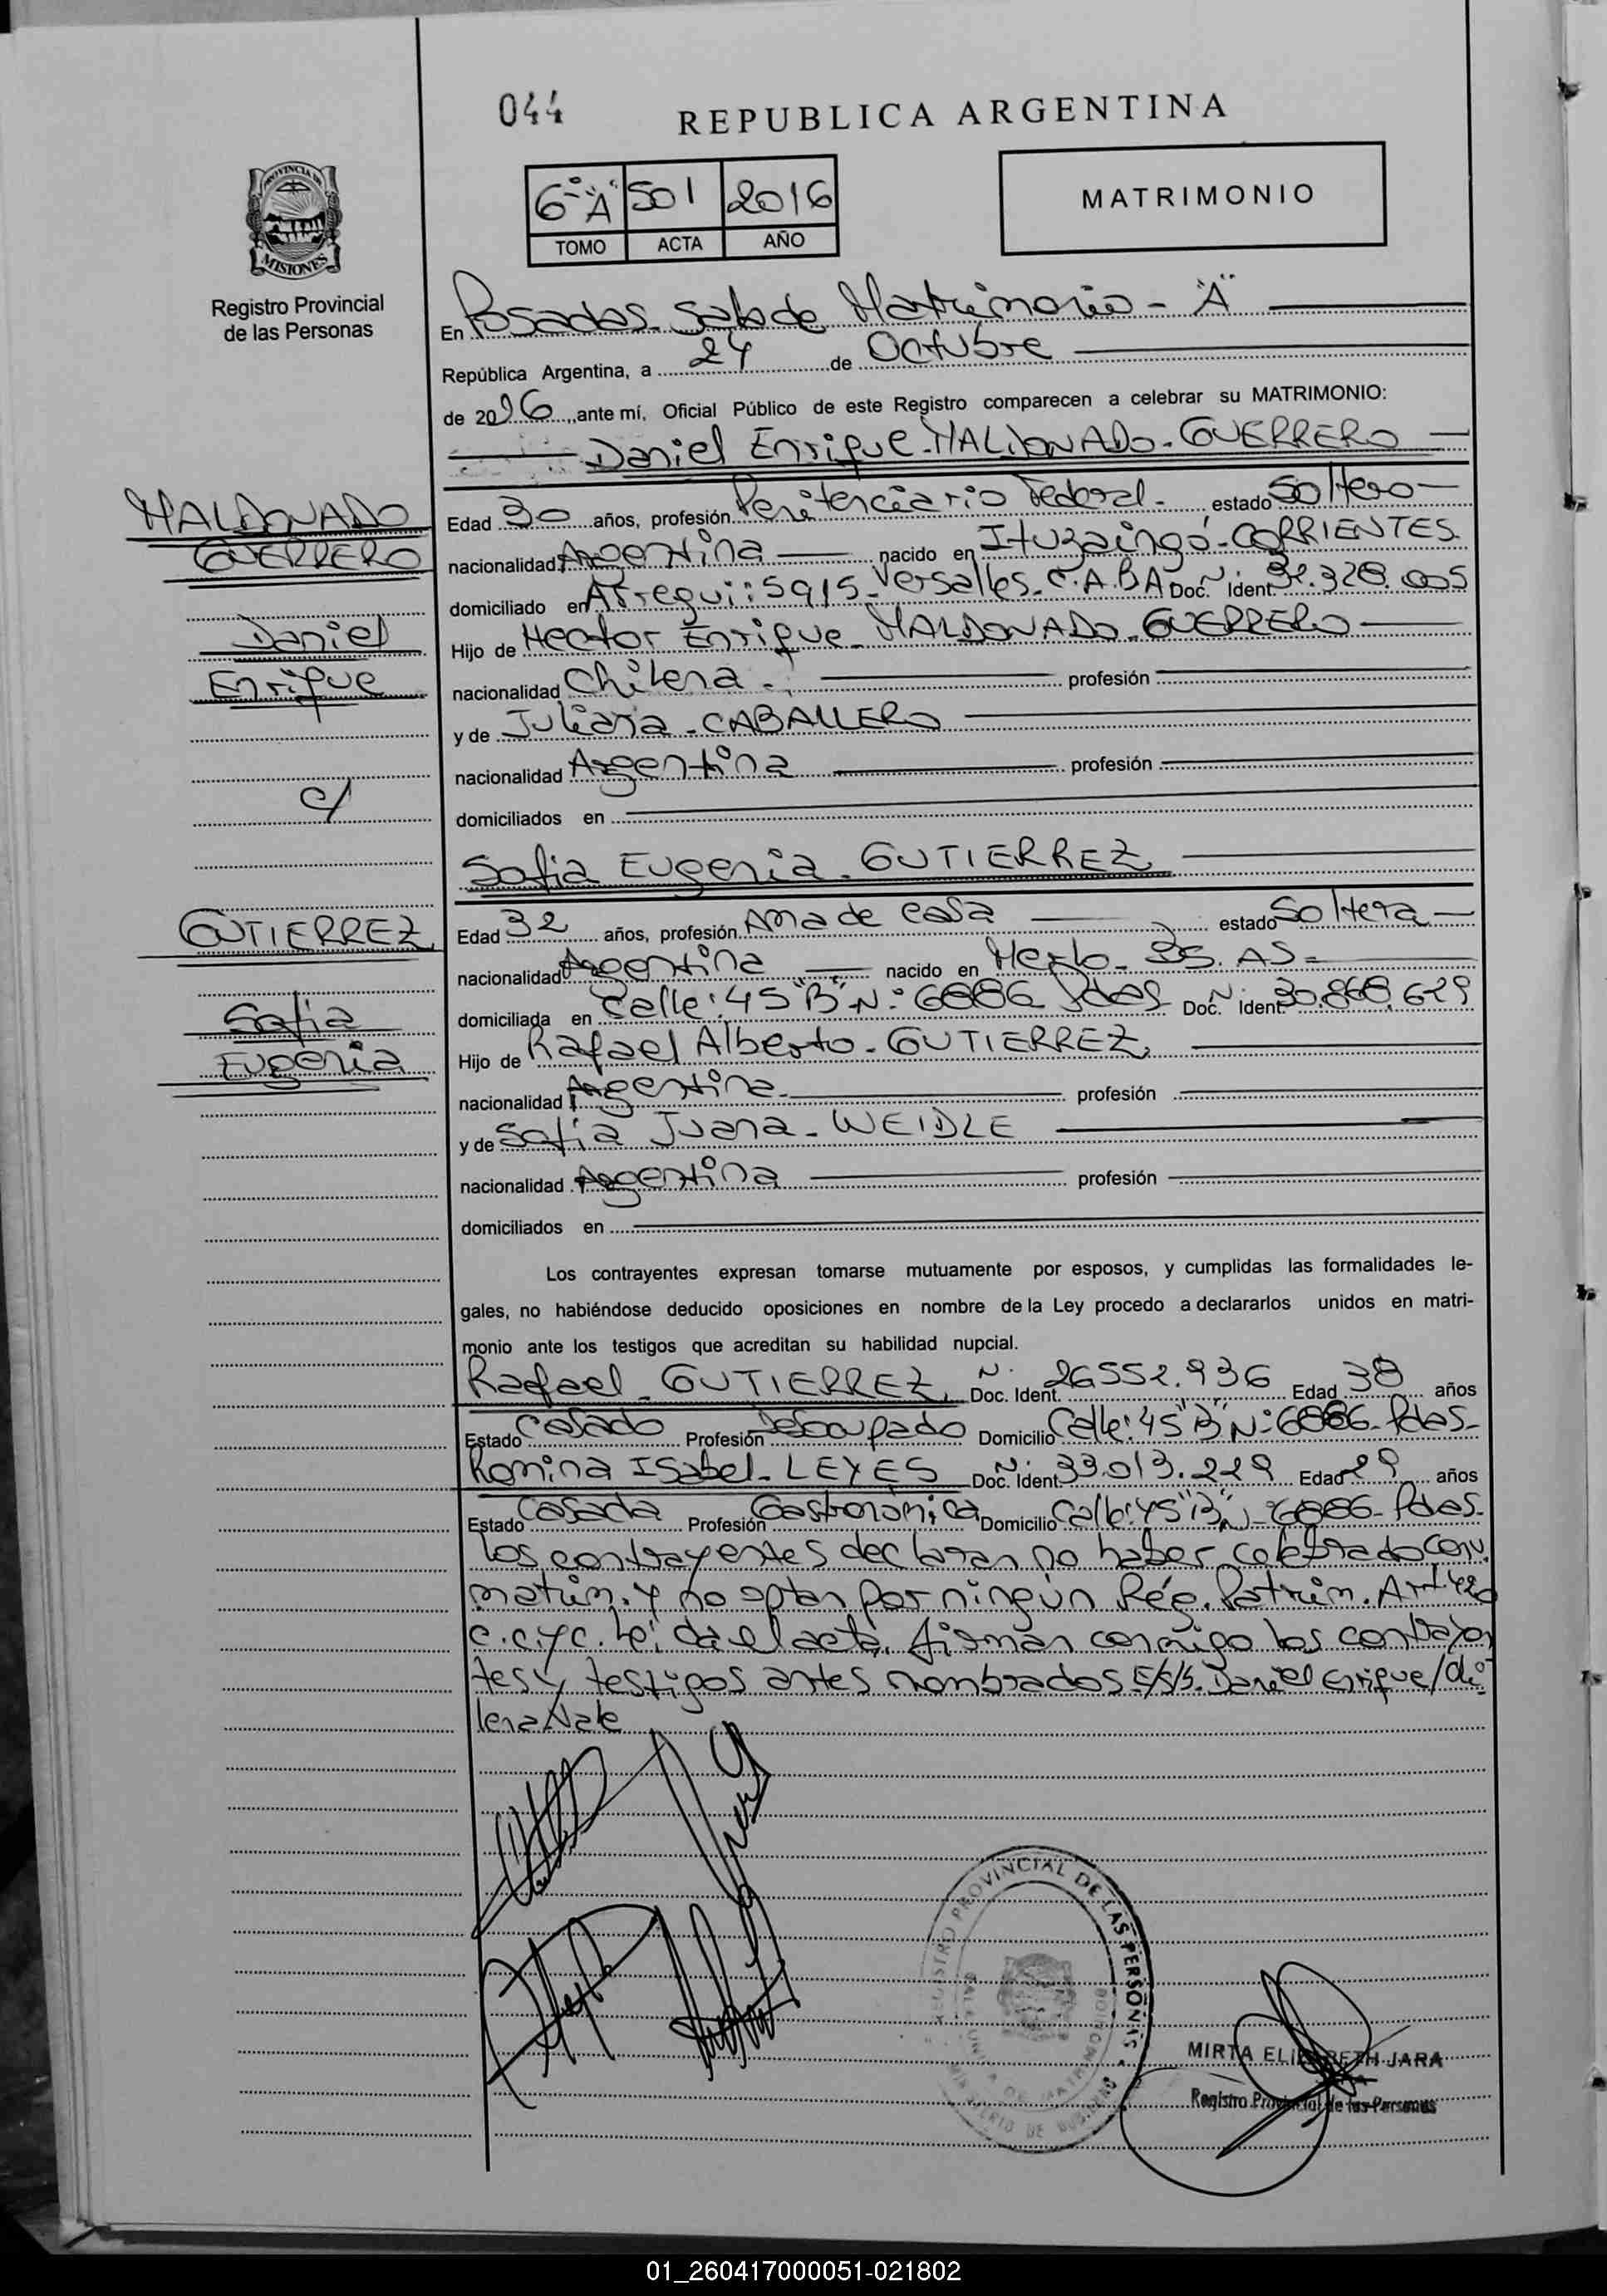 044
REPUBLICA ARGENTINA
6º "A" 501 2016
TOMO ACTA AÑO
MATRIMONIO
PROVINCIA DE
MISIONES
Registro Provincial
de las Personas
En Posadas - Sala de Matrimonio - "A"
República Argentina, a 24 de Octubre
de 2016, ante mí, Oficial Público de este Registro comparecen a celebrar su MATRIMONIO:
Daniel Enrique - MALDONADO - GUERRERO
MALDONADO
GUERRERO
Daniel
Enrique
c/
GUTIERREZ
Sofia
Eugenia
Edad 30 años, profesión Penitenciario Federal - estado Soltero
nacionalidad Argentina nacido en Ituzaingó - CORRIENTES
domiciliado en Arregui: 5915 - Versalles - C.A.B.A Doc. Nº Ident. 32.328.005
Hijo de Hector Enrique - MALDONADO - GUERRERO
nacionalidad Chilena - profesión
y de Juliana - CABALLERO
nacionalidad Argentina profesión
domiciliados en
Sofia Eugenia - GUTIERREZ
Edad 32 años, profesión Ama de casa estado Soltera
nacionalidad Argentina nacido en Merlo - BS. AS -
domiciliada en Calle: 45 "B" Nº 6886 Pdas Doc. Nº Ident. 30.868.629
Hijo de Rafael Alberto - GUTIERREZ
nacionalidad Argentina - profesión
y de Sofia Juana - WEIDLE
nacionalidad Argentina profesión
domiciliados en
Los contrayentes expresan tomarse mutuamente por esposos, y cumplidas las formalidades le-
gales, no habiéndose deducido oposiciones en nombre de la Ley procedo a declararlos unidos en matri-
monio ante los testigos que acreditan su habilidad nupcial.
Rafael - GUTIERREZ Nº Doc. Ident. 26552.936 Edad 38 años
Estado Casado Profesión Desocupado Domicilio Calle: 45 "B" Nº 6886 - Pdas -
Romina Isabel - LEYES Nº Doc. Ident. 33.013.229 Edad 29 años
Estado Casada Profesión Gastronómica Domicilio Calle: 45 "B" Nº 6886 - Pdas -
Los contrayentes declaran no haber celebrado conv.
matrim. y no optan por ningún Rég. Patrim. Art. 420
c.c.yc. Leída el acta, firman conmigo los contrayen
tes y testigos antes nombrados E/S/S. Daniel Enrique/chi
lena Vale
REGISTRO PROVINCIAL DE LAS PERSONAS
MINISTERIO DE GOBIERNO
MIRTA ELIZABETH JARA
Registro Provincial de las Personas
01_260417000051-021802